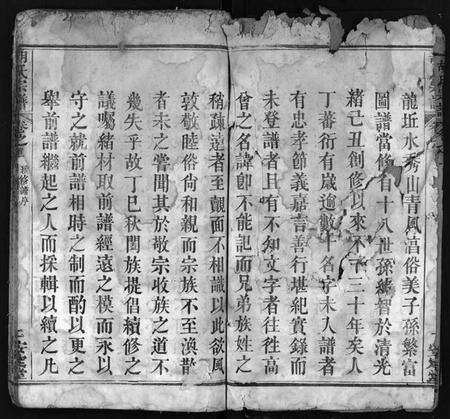 龍坵水秀山青風淳俗美子孫繁富
圖譜當修自十八世孫緒智於清光
緒己丑創修以來不下三十年矣人
丁蕃衍有歲逾數十名字未入譜者
有忠孝節義嘉言善行堪紀實錄而
未登譜者且有不知文字者往往高
曾之名諱即不能記而兄弟族姓之
稍疎遠者至覿面不相識以此欲風
敦敬睦俗尚和親而宗族不至渙散
者未之嘗聞其於敬宗收族之道不
幾失乎故丁巳秋闔族提倡續修之
議囑緒材取前譜經遠之模而永以
守之就前譜相時之制而酌以更之
舉前譜繼起之人而採輯以續之凡
氏宗譜
卷之
續修譜序